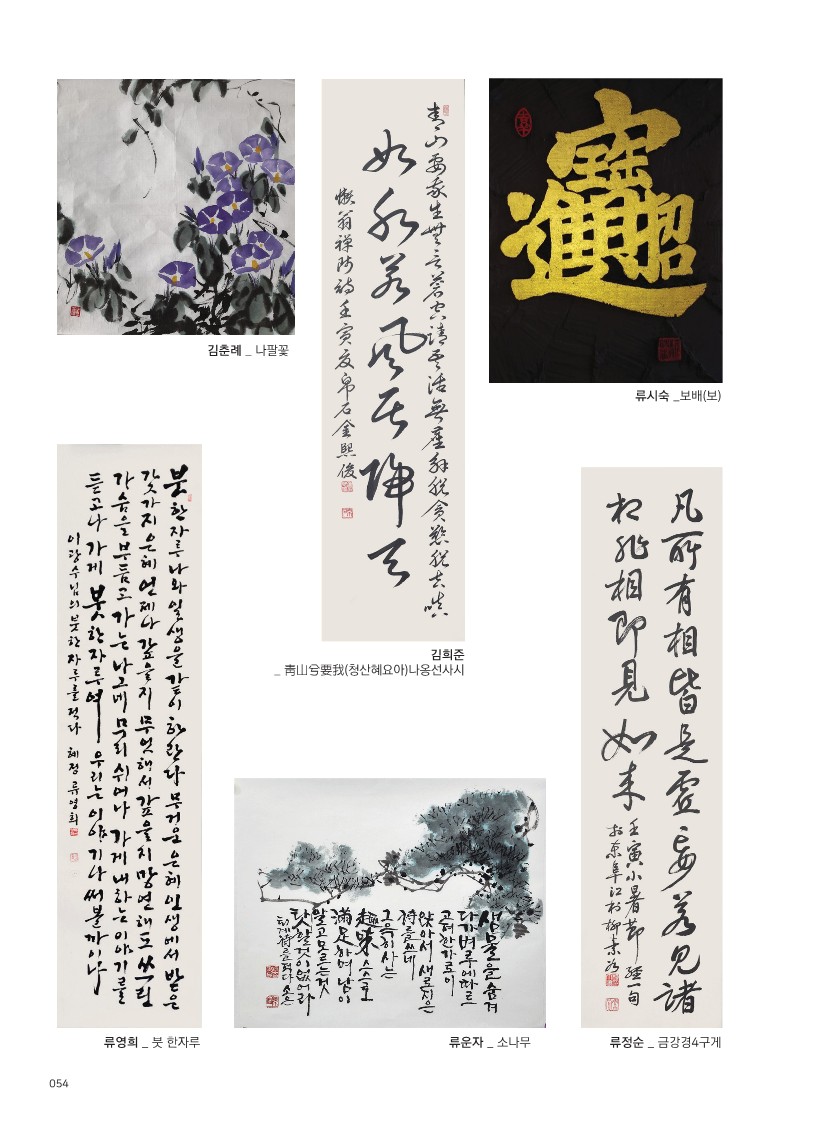 김춘례 _ 나팔꽃
青山要我生無言蒼空請吾活無塵解脫貪慾脫去嗔
如水若風居歸天
懶翁禪師詩壬寅夏帛石金熙俊
김희준
_ 靑山兮要我(청산혜요아)나옹선사시
招財進寶
류시숙 _보배(보)
붓한자루나와일생을같이하란다무거운은혜인생에서받은
갖가지은혜언제나갚을지무엇해서갚을지망연해도쓰린
가슴을부듬고가는나그네무리쉬어나가게내하는이야기를
듣고나가게붓한자루여우리는이야기나써볼까이나
이광수님의붓한자루를적다 혜정 류영희
류영희 _ 붓 한자루
샘물을숨겨
다가벼루에따르
고 한가로이
앉아서새로지은
詩를쓰네
그윽히사는
趣味스스로
滿足하며남이
알고모르는것
탓할것이없어라
퇴계詩를적다 소은
류운자 _ 소나무
凡所有相皆是虛妄若見諸
相非相即見如來
壬寅小暑節經一句
류정순 _ 금강경4구게
054